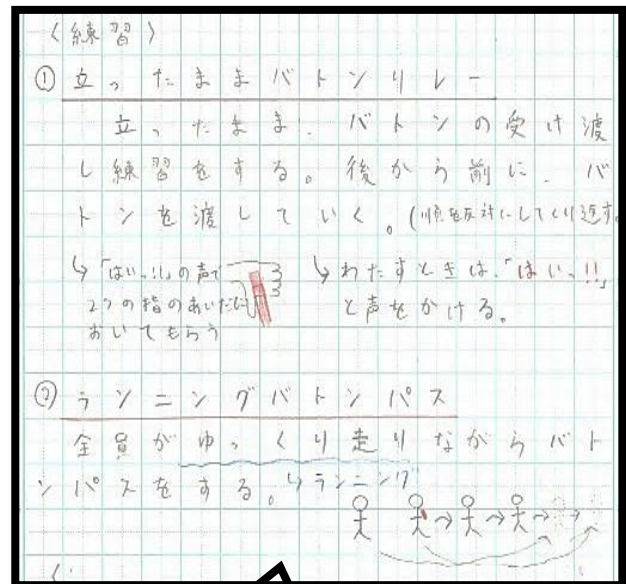 〈練習〉
① 立ったままバトンリレー
立ったまま、バトンの受け渡
し練習をする。後から前に、バ
トンを渡していく。(順を反対にしてくり返す。
↳「はいっ!!」の声で
2つの指のあいだに
おいてもらう
↳わたすときは、「はいっ!!」
と声をかける。
② ランニングバトンパス
全員がゆっくり走りながらバト
ンパスをする。↳ランニング